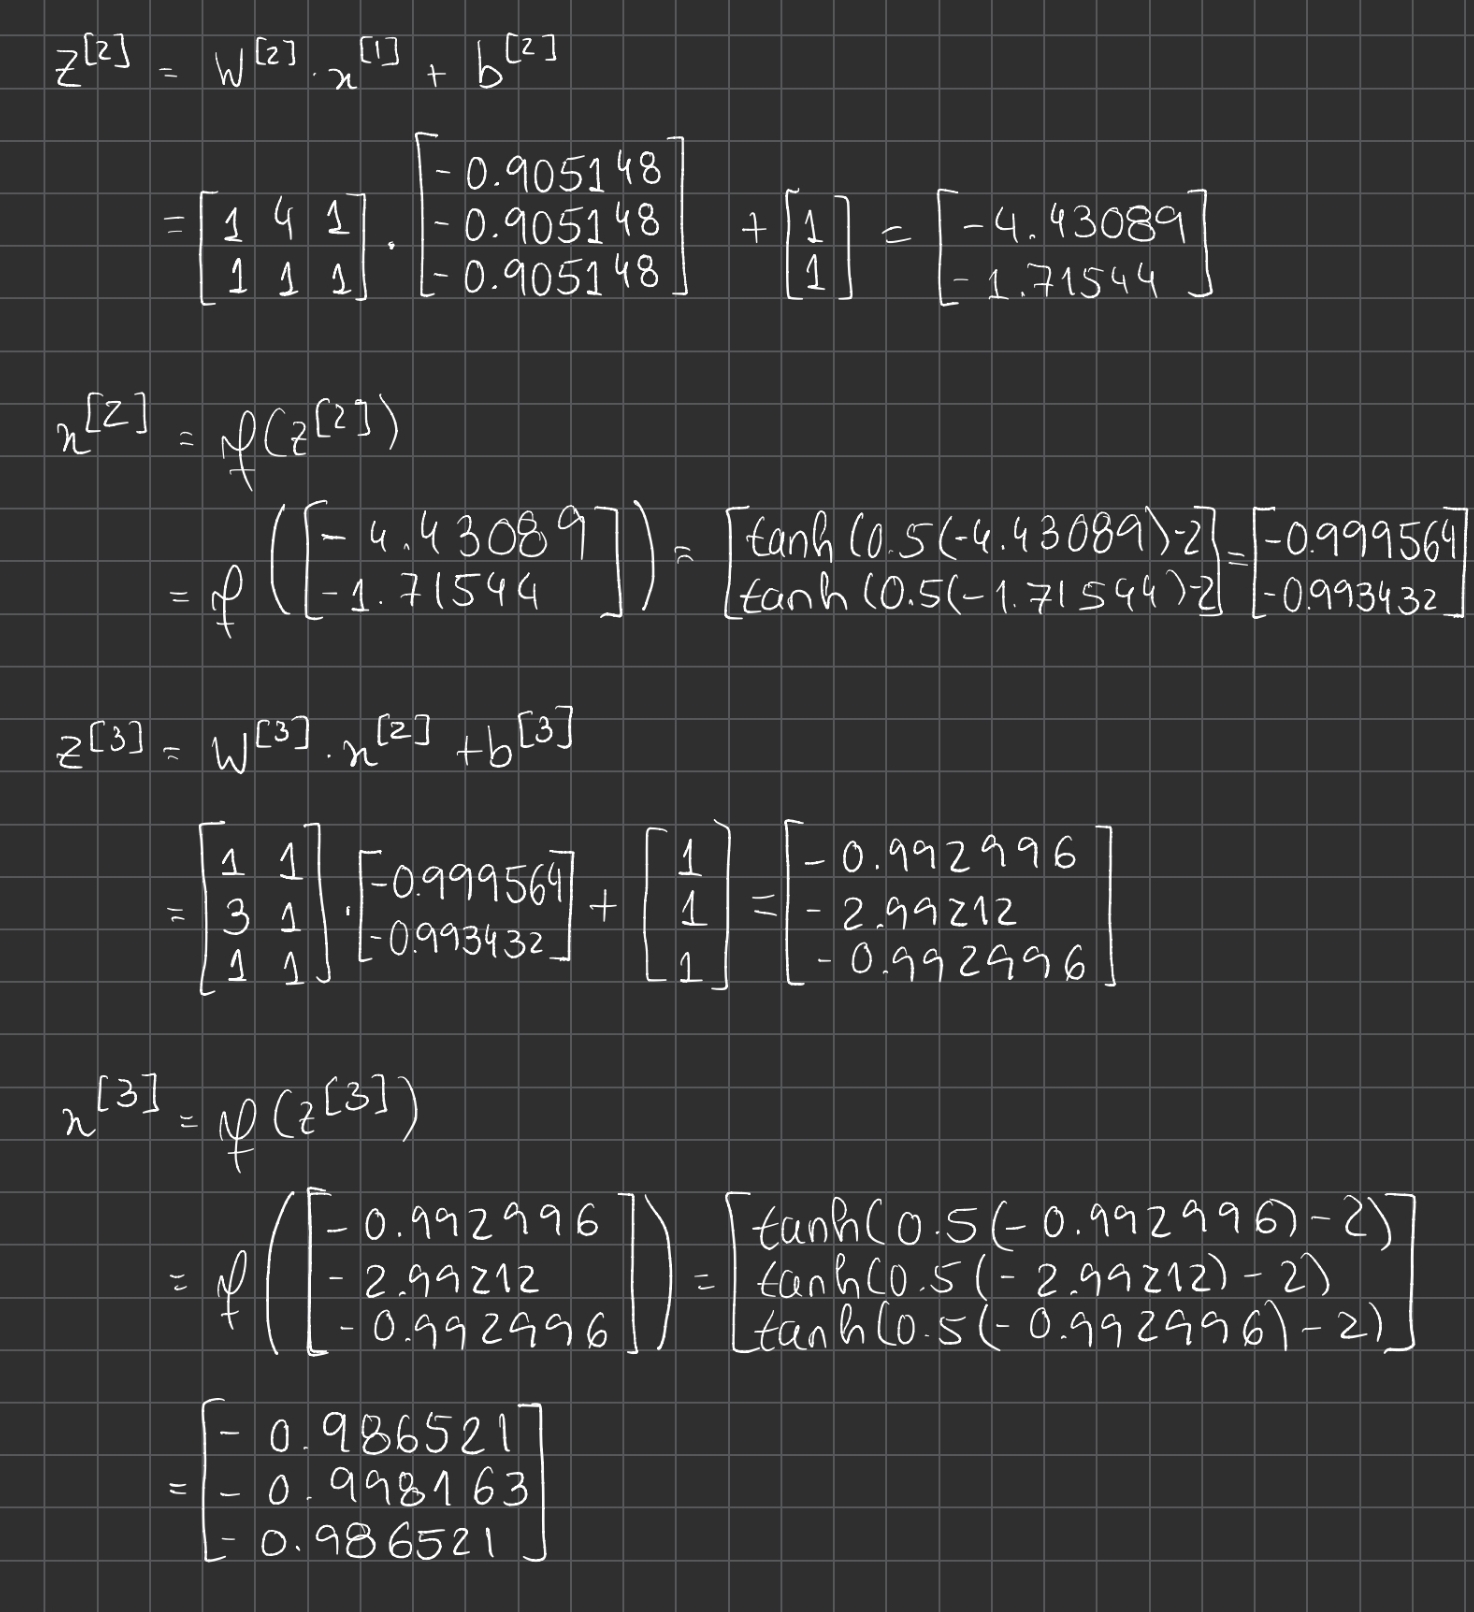 z^[2] = W^[2] · x^[1] + b^[2]
= [1 4 1; 1 1 1] · [-0.905148; -0.905148; -0.905148] + [1; 1] = [-4.43089; -1.71544]
x^[2] = φ(z^[2])
= φ([-4.43089; -1.71544]) = [tanh(0.5(-4.43089)-2; tanh(0.5(-1.71544)-2] = [-0.999564; -0.993432]
z^[3] = W^[3] · x^[2] + b^[3]
= [1 1; 3 1; 1 1] · [-0.999564; -0.993432] + [1; 1; 1] = [-0.992996; -2.99212; -0.992996]
x^[3] = φ(z^[3])
= φ([-0.992996; -2.99212; -0.992996]) = [tanh(0.5(-0.992996)-2); tanh(0.5(-2.99212)-2); tanh(0.5(-0.992996)-2)]
= [-0.986521; -0.998163; -0.986521]